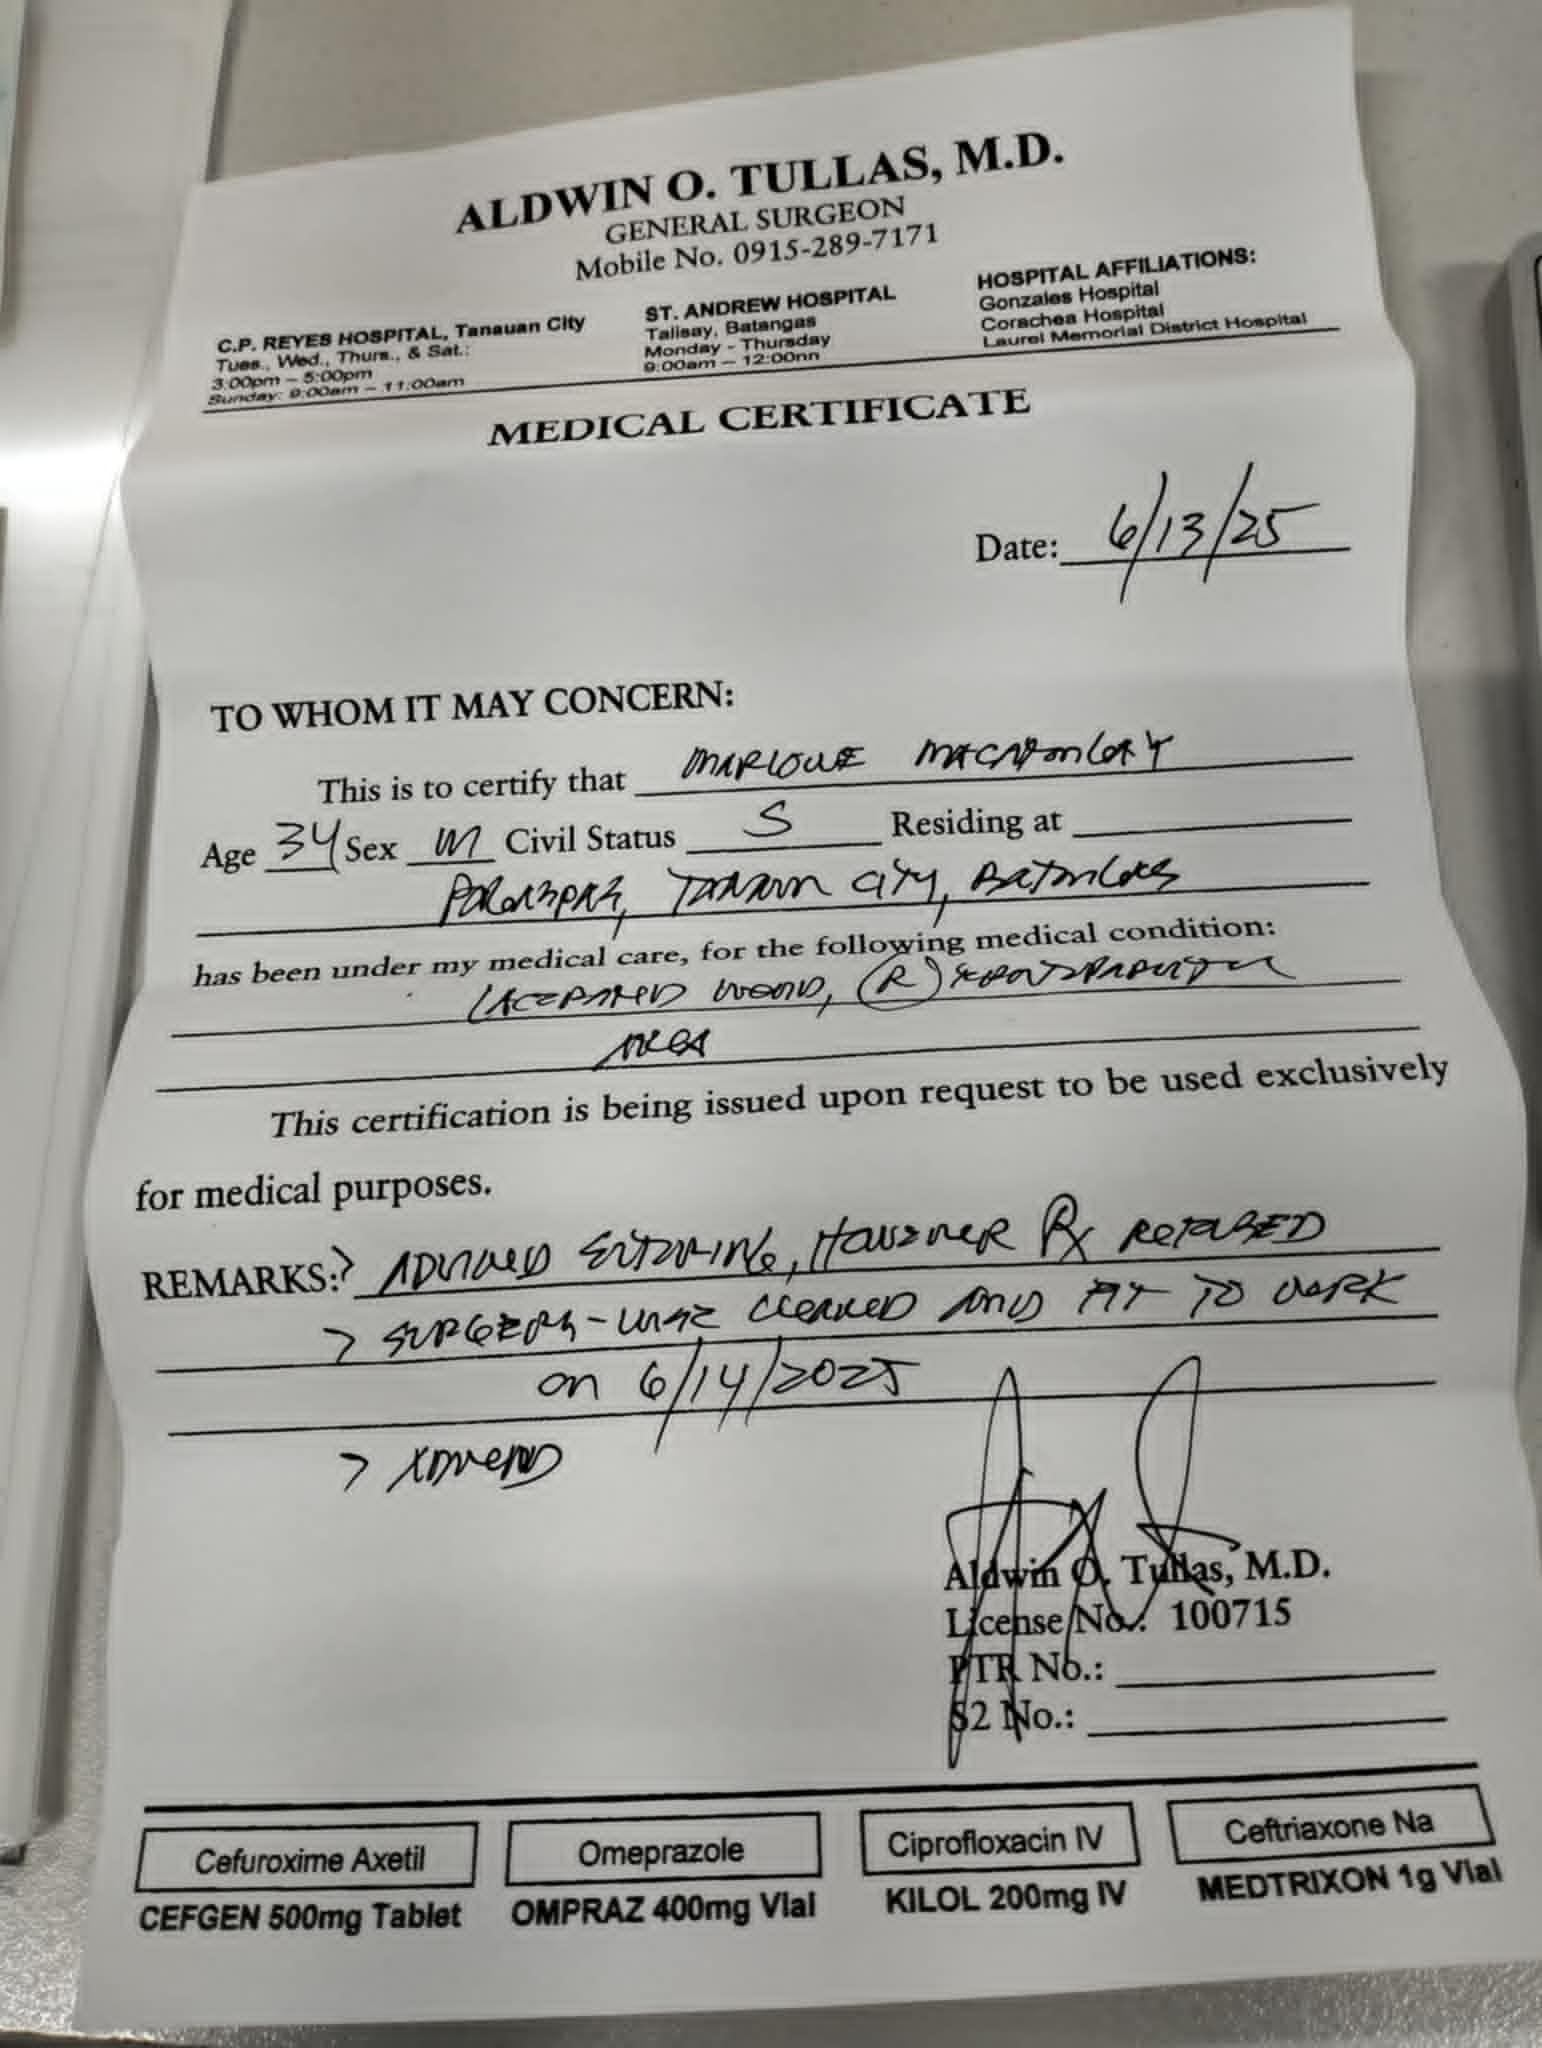 ALDWIN O. TULLAS, M.D.
GENERAL SURGEON
Mobile No. 0915-289-7171
C.P. REYES HOSPITAL, Tanauan City
Tues., Wed., Thurs., & Sat.:
3:00pm – 5:00pm
Sunday: 9:00am – 11:00am
ST. ANDREW HOSPITAL
Talisay, Batangas
Monday - Thursday
9:00am – 12:00nn
HOSPITAL AFFILIATIONS:
Gonzales Hospital
Corachea Hospital
Laurel Memorial District Hospital
MEDICAL CERTIFICATE
Date: 6/13/25
TO WHOM IT MAY CONCERN:
This is to certify that MARLOWE
Age 34 Sex M Civil Status S Residing at
City, Batangas
has been under my medical care, for the following medical condition:
LACERATED WOUND, (R)
AREA
This certification is being issued upon request to be used exclusively
for medical purposes.
REMARKS: > ADVISED SUTURING, HOWEVER Rx REFUSED
> SURGERY-WISE CLEARED AND FIT TO WORK
on 6/14/2025
> ADVISED
Aldwin O. Tullas, M.D.
License No.: 100715
PTR No.:
S2 No.:
Cefuroxime Axetil
CEFGEN 500mg Tablet
Omeprazole
OMPRAZ 400mg Vial
Ciprofloxacin IV
KILOL 200mg IV
Ceftriaxone Na
MEDTRIXON 1g Vial